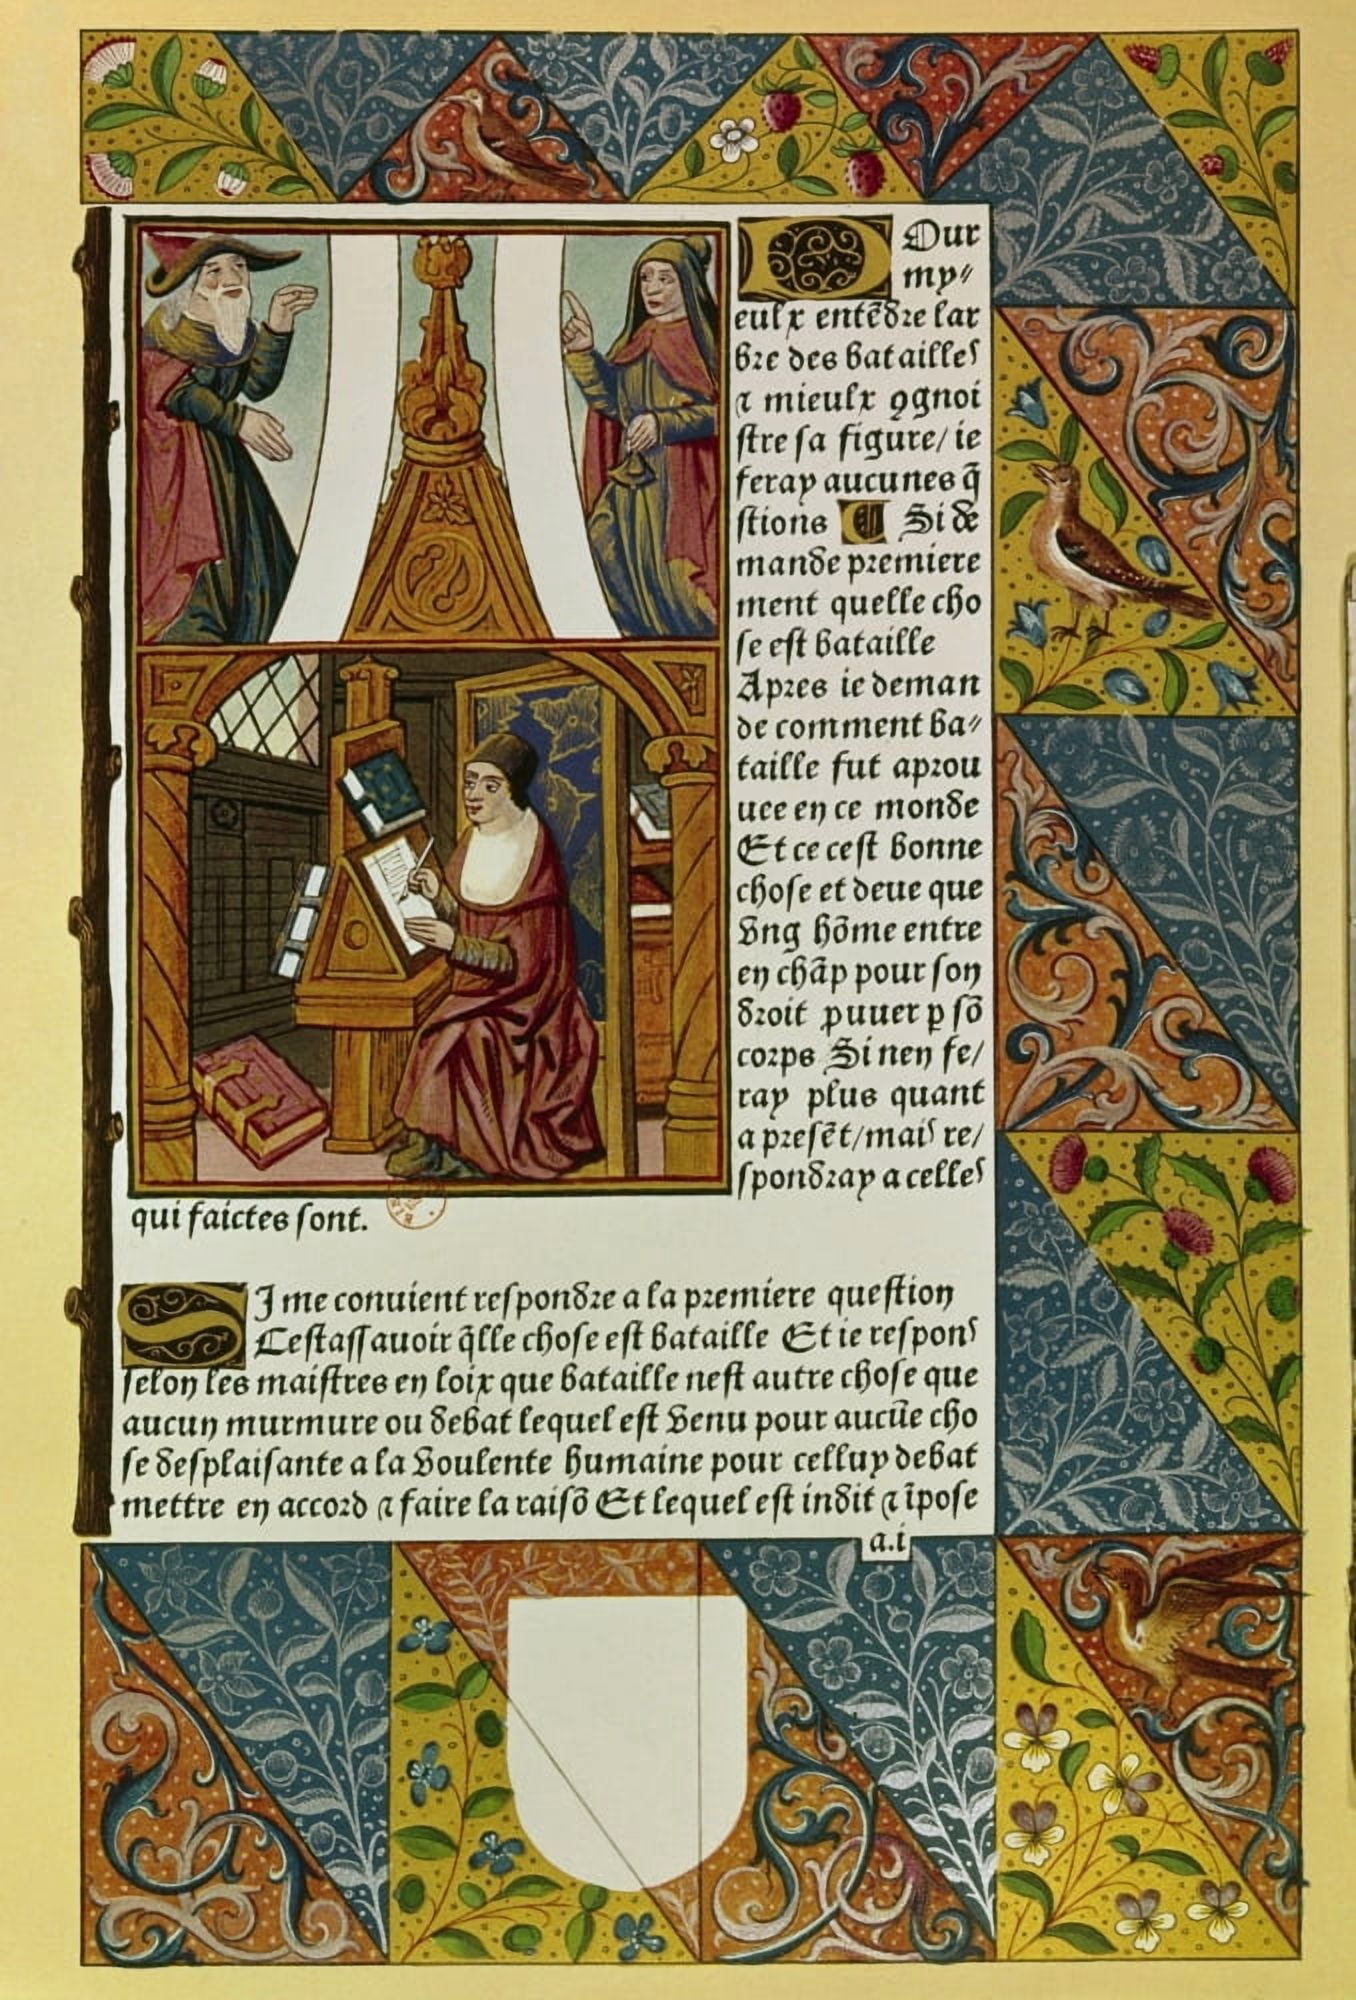 POur
my⸗
eulx entēdre lar
bre des batailles
⁊ mieulx ꝯgnoi
stre sa figure/ ie
feray aucunes q̄
stions ¶ Si de
mande premiere
ment quelle cho
se est bataille
Apres ie deman
de comment ba⸗
taille fut aprou
uee en ce monde
Et ce cest bonne
chose et deue que
vng hōme entre
en chāp pour son
droit ꝓuuer ꝑ sō
corps Si nen fe/
ray plus quant
a presēt/mais re/
spondray a celles
qui faictes sont.
SJ me conuient respondre a la premiere question
Cestassauoir q̄lle chose est bataille Et ie respons
selon les maistres en loix que bataille nest autre chose que
aucun murmure ou debat lequel est venu pour aucūe cho
se desplaisante a la voulente humaine pour celluy debat
mettre en accord ⁊ faire la raisō Et lequel est indit ⁊ īpose
a.i